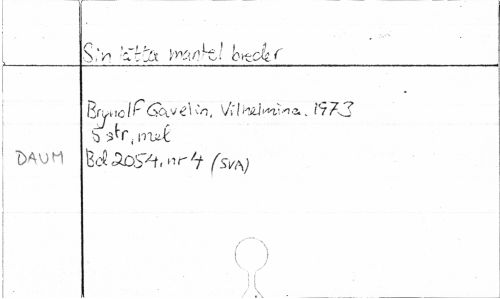 Sin lätta mantel breder
Brynolf Gavelin, Vilhelmina, 1973
5 str, mel
DAUM Bd 2054, nr 4 (SVA)